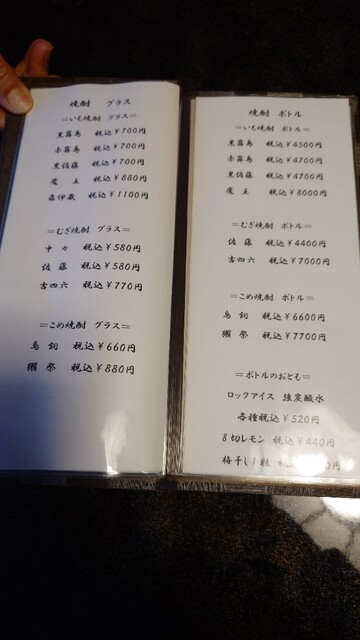 焼酎 グラス
=いも焼酎 グラス=
黒霧島 税込¥700円
赤霧島 税込¥700円
黒佐藤 税込¥700円
魔王 税込¥880円
森伊蔵 税込¥1100円
=むぎ焼酎 グラス=
中々 税込¥580円
佐藤 税込¥580円
吉四六 税込¥770円
=こめ焼酎 グラス=
鳥飼 税込¥660円
獺祭 税込¥880円
焼酎 ボトル
=いも焼酎 ボトル=
黒霧島 税込¥4500円
赤霧島 税込¥4700円
黒佐藤 税込¥4700円
魔王 税込¥8000円
=むぎ焼酎 ボトル=
佐藤 税込¥4400円
吉四六 税込¥7000円
=こめ焼酎 ボトル=
鳥飼 税込¥6600円
獺祭 税込¥7700円
=ボトルのおとも=
ロックアイス 強炭酸水
各種税込¥320円
8切レモン 税込¥440円
梅干し1粒 円